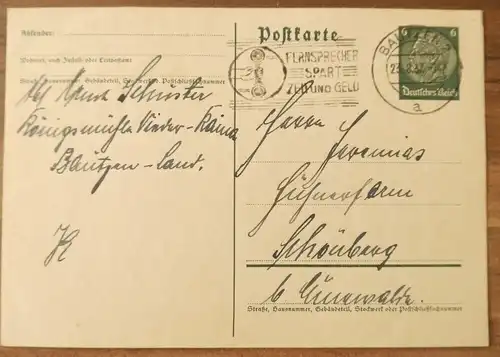 Absender:
Wohnort, auch Zustell- oder Leitpostamt
Straße, Hausnummer, Gebäudeteil, Stockwerk od. Postschließfachnummer
Schuster
Königsmühle Nieder-Kaina
Bautzen-Land.
Postkarte
FERNSPRECHER
SPART
ZEIT UND GELD
BAUTZEN
a
6
6
Deutsches Reich
Herrn Jeremias
Hühnerfarm
Schönberg
b. Cunewalde.
Straße, Hausnummer, Gebäudeteil, Stockwerk oder Postschließfachnummer